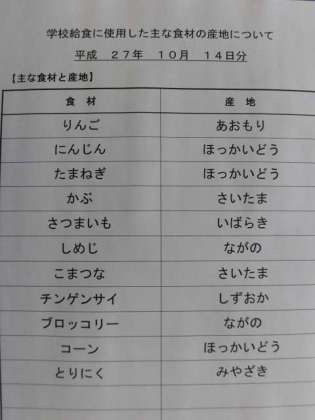 学校給食に使用した主な食材の産地について
平成 27年 10月 14日分
【主な食材と産地】
食材 産地
りんご あおもり
にんじん ほっかいどう
たまねぎ ほっかいどう
かぶ さいたま
さつまいも いばらき
しめじ ながの
こまつな さいたま
チンゲンサイ しずおか
ブロッコリー ながの
コーン ほっかいどう
とりにく みやざき